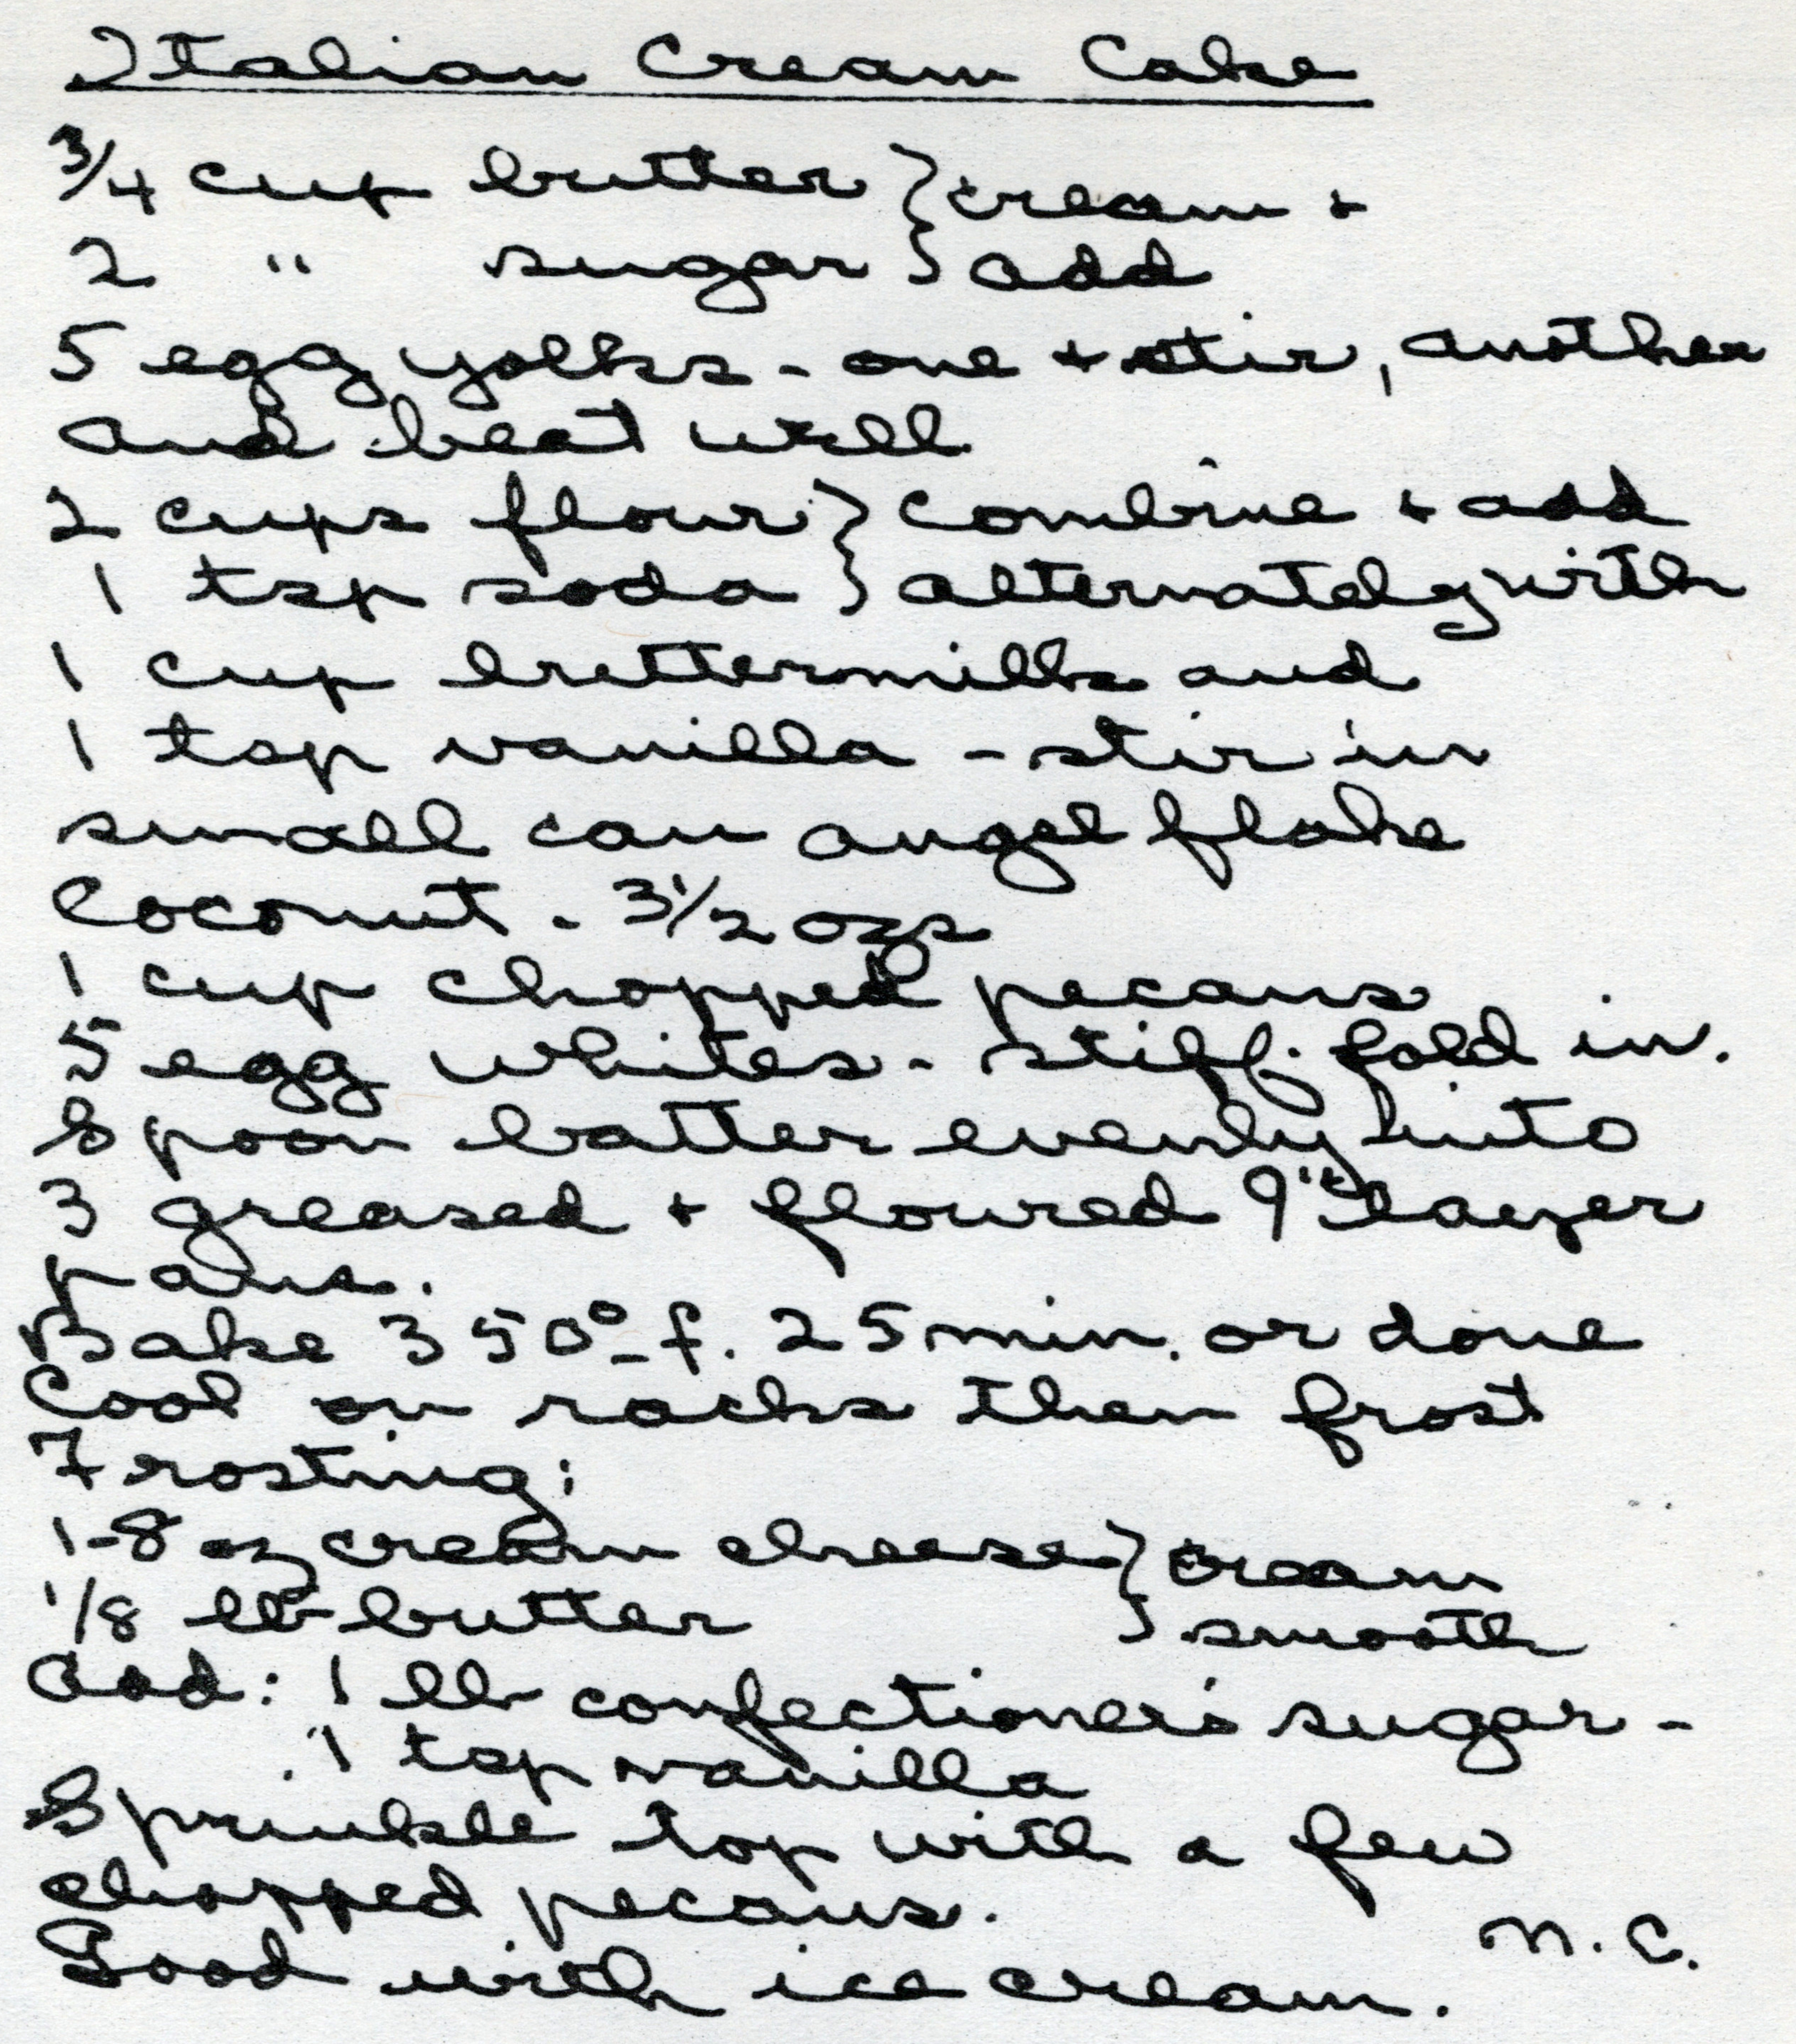 Italian Cream Cake
3/4 cup butter } cream +
2 " sugar } add
5 egg yolks - one + stir, another
and beat well
2 cups flour } combine + add
1 tsp soda } alternately with
1 cup buttermilk and
1 tsp vanilla - stir in
small can angel flake
Coconut - 3 1/2 ozs
1 cup chopped pecans
5 egg whites - stiff. fold in.
Spoon batter evenly into
3 greased + floured 9" layer
pans.
Bake 350° f. 25 min. or done
Cool on racks then frost
Frosting:
1-8 oz cream cheese } cream
1/8 lb butter } smooth
Add: 1 lb confectioner's sugar -
1 tsp vanilla
Sprinkle top with a few
chopped pecans.
N.C.
Good with ice cream.